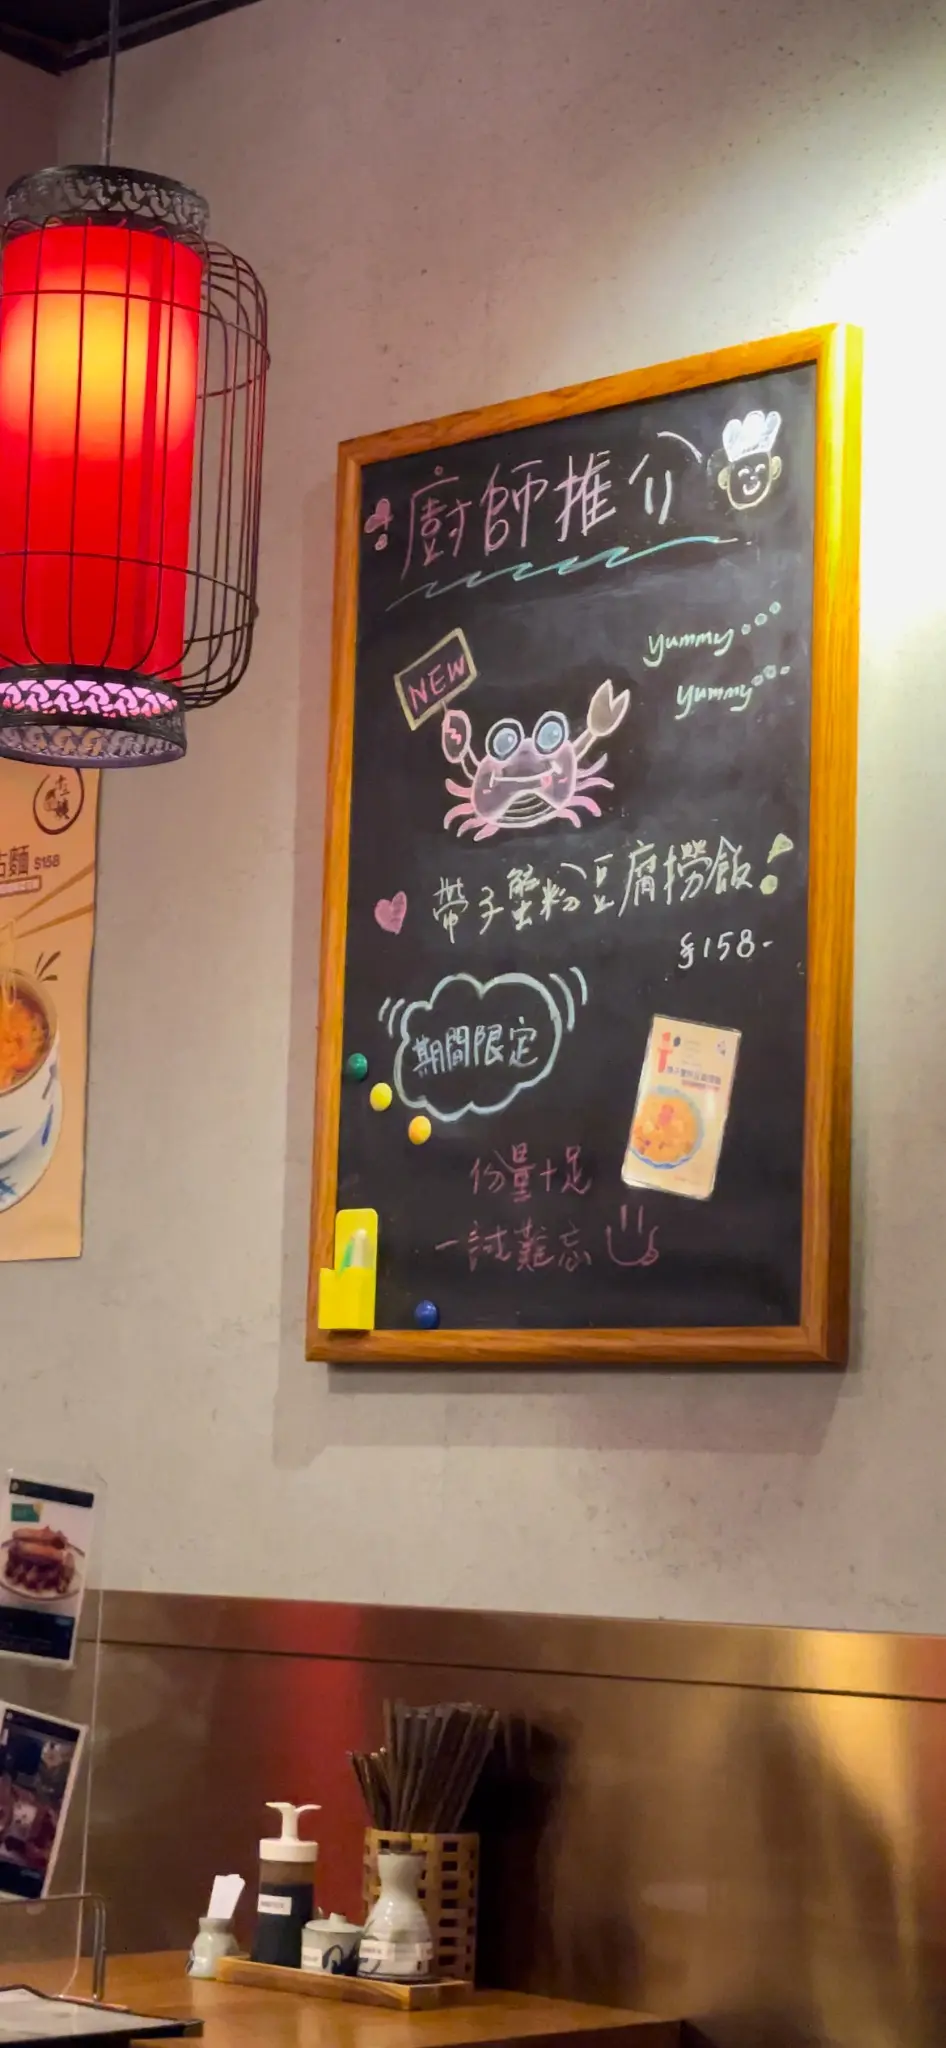 廚師推介
yummy
yummy
NEW
帶子蟹粉豆腐撈飯！
$158-
期間限定
份量十足
一試難忘
麵 $158